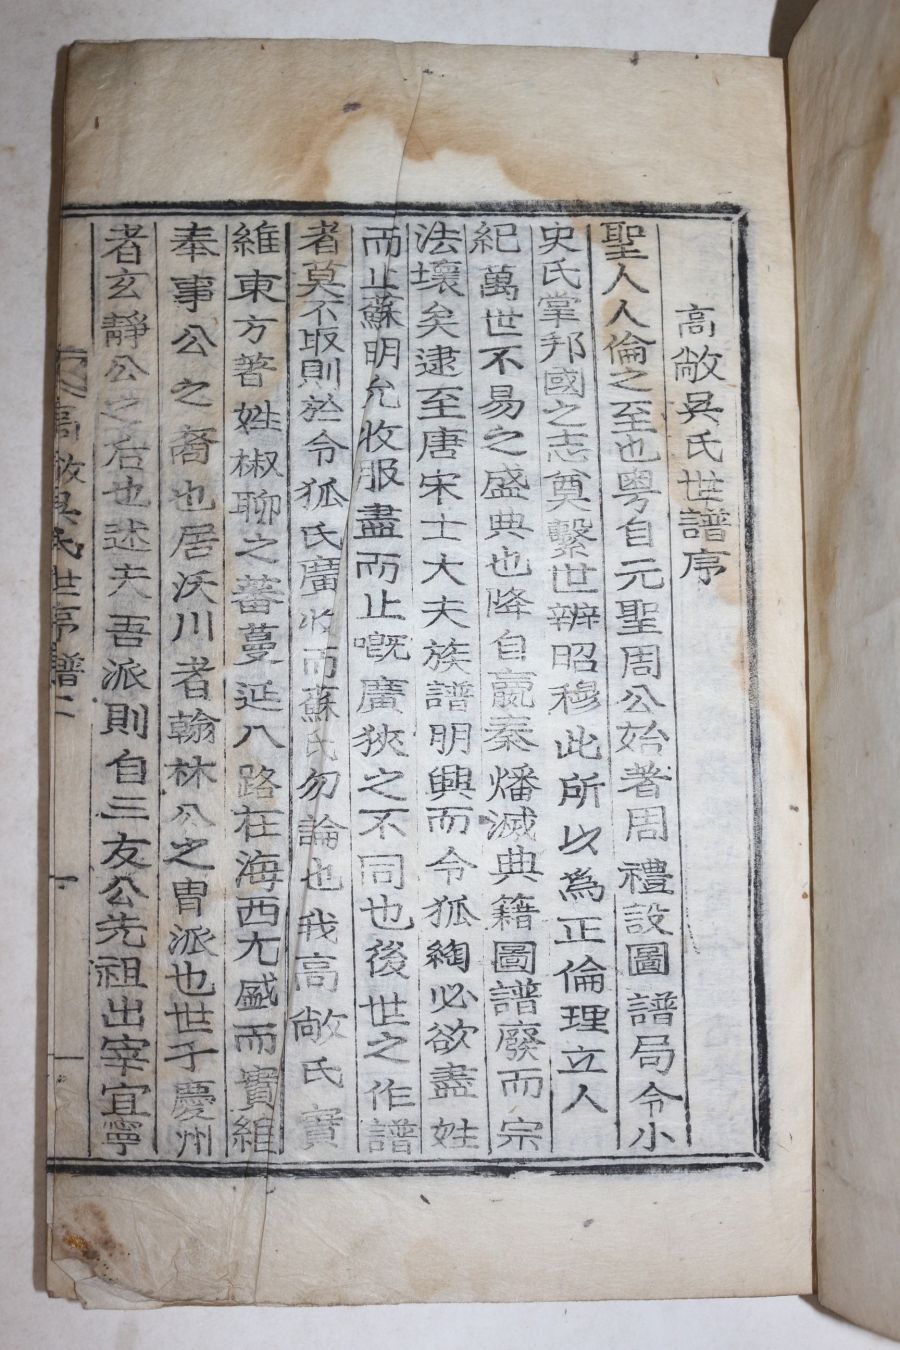 高敞吳氏世譜序
聖人人倫之至也粤自元聖周公始著周禮設圖譜局令小
史氏掌邦國之志奠繫世辨昭穆此所以為正倫理立人
紀萬世不易之盛典也降自嬴秦燔滅典籍圖譜廢而宗
法壞矣逮至唐宋士大夫族譜明興而令狐綯必欲盡姓
而止蘇明允收服盡而止嘅廣狹之不同也後世之作譜
者莫不取則於令狐氏廣收而蘇氏勿論也我高敞氏實
維東方著姓椒聊之蕃蔓延八路在海西尢盛而實維
奉事公之裔也居沃川者翰林公之胄派也世于慶州
者玄靜公之后也述夫吾派則自三友公先祖出宰宜寧
高敞吳氏世序譜
一